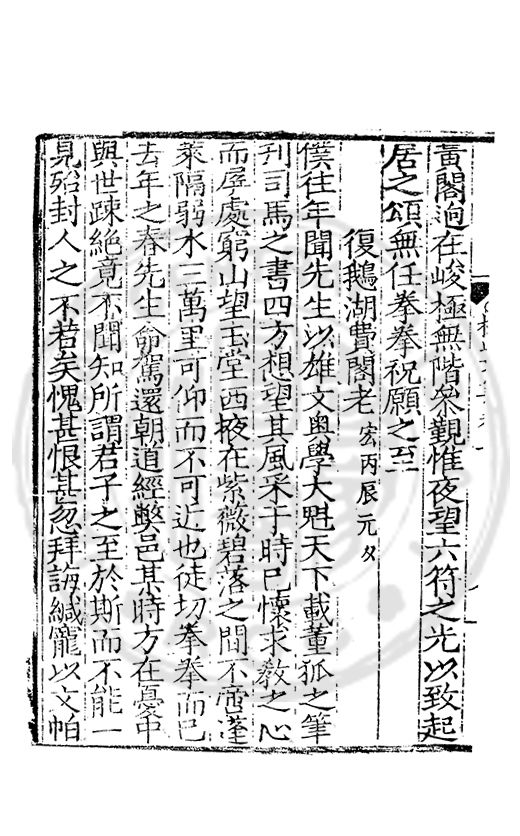 黃閣逈在峻極無階叅覲惟夜望六符之光以致起
居之頌無任拳拳祝願之至
復鵝湖費閣老宏丙辰元夕
僕往年聞先生以雄文奧學大魁天下載董狐之筆
刊司馬之書四方想望其風采于時已懷求敎之心
而孱處窮山望玉堂西掖在紫薇碧落之間不啻蓬
萊隔弱水三萬里可仰而不可近也徒切拳拳而已
去年之春先生命駕還朝道經弊邑某時方在憂中
與世踈絶竟不聞知所謂君子之至於斯而不能一
見殆封人之不若矣愧甚恨甚忽拜誨緘寵以文帕